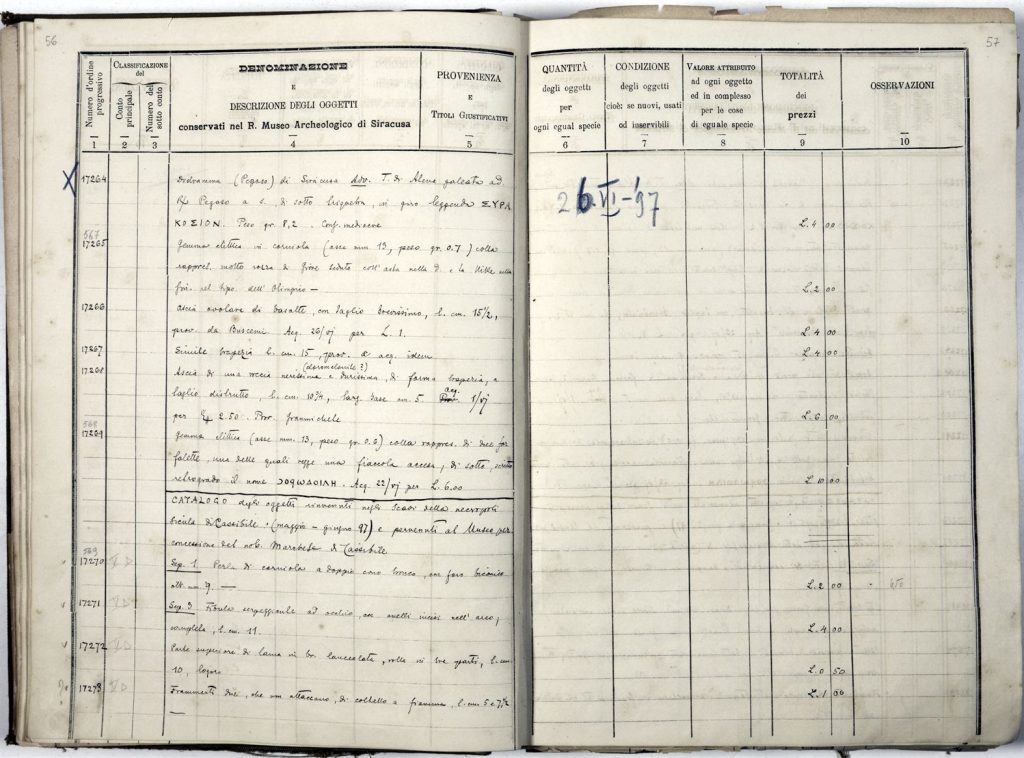 56
Numero d'ordine progressivo
1
CLASSIFICAZIONE
del
Conto principale
2
Numero del sotto conto
3
DENOMINAZIONE
E
DESCRIZIONE DEGLI OGGETTI
conservati nel R. Museo Archeologico di Siracusa
4
PROVENIENZA
E
TITOLI GIUSTIFICATIVI
5
17264
Didramma (Pegaso) di Siracusa Adv. T. di Atena galeata ad.
Pegaso a s. di sotto in giro leggenda ΣΥΡΑ
ΚΟΣΙΟΝ. Peso gr. 8,2. Conf. mediocre
567
17265
Gemma elittica in corniola (asse mm. 13, peso gr. 0.7) colla
rappres. molto rozza di Giove seduto coll'asta nella d. e la Nike nella
tipo dell'Olimpio —
17266
Ascia ovolare di basalte, con taglio l. cm. 15 1/2,
prov. da Buscemi Acq. 26/vj per L. 1.
17267
Simile trapezia l. cm. 15, prov. & acq. idem
17268
Ascia di una roccia nerissima e durissima, di forma trapezia, a
taglio distrutto, l. cm. 10 3/4, larg. base cm. 5 acq. 1/vj
per 2.50. Prov. Grammichele
568
17269
Gemma elittica (asse mm. 13, peso gr. 0.6) colla rappres. di due
una delle quali regge una fiaccola accesa, di sotto, scritto
retrogrado il nome . Acq. 22/vj per L. 6.00
CATALOGO degli oggetti rinvenuti negli Scavi della necropoli
Sicula di Cassibile (maggio - giugno 97) e pervenuti al Museo per
concessione del nob. Marchese di Cassibile
569
17270
V D
Sep. 1. Perla di corniola a doppio cono tronco, con foro biconico
alt. mm 9. —
17271
V D
Sep. 3 Fibula serpeggiante ad occhio, con anelli incisi nell'arco,
completa, l. cm. 11.
17272
V D
Parte superiore di lama in br. lanceolata, rotta in tre parti, l. cm.
10, logora
17273
V D
Frammenti due, che non attaccano, di coltello a fiamma, l. cm 5 e 7 1/2
—
57
QUANTITÀ
degli oggetti
per
ogni egual specie
6
CONDIZIONE
degli oggetti
cioè: se nuovi, usati
od inservibili
7
VALORE ATTRIBUITO
ad ogni oggetto
ed in complesso
per le cose
di eguale specie
8
TOTALITÀ
dei
prezzi
9
OSSERVAZIONI
10
26-VI-'97
L. 4 00
L. 2 00
L. 4 00
L. 4 00
L. 6 00
L. 10 00
L. 2 00
L. 4 00
L. 0 50
L. 1 00